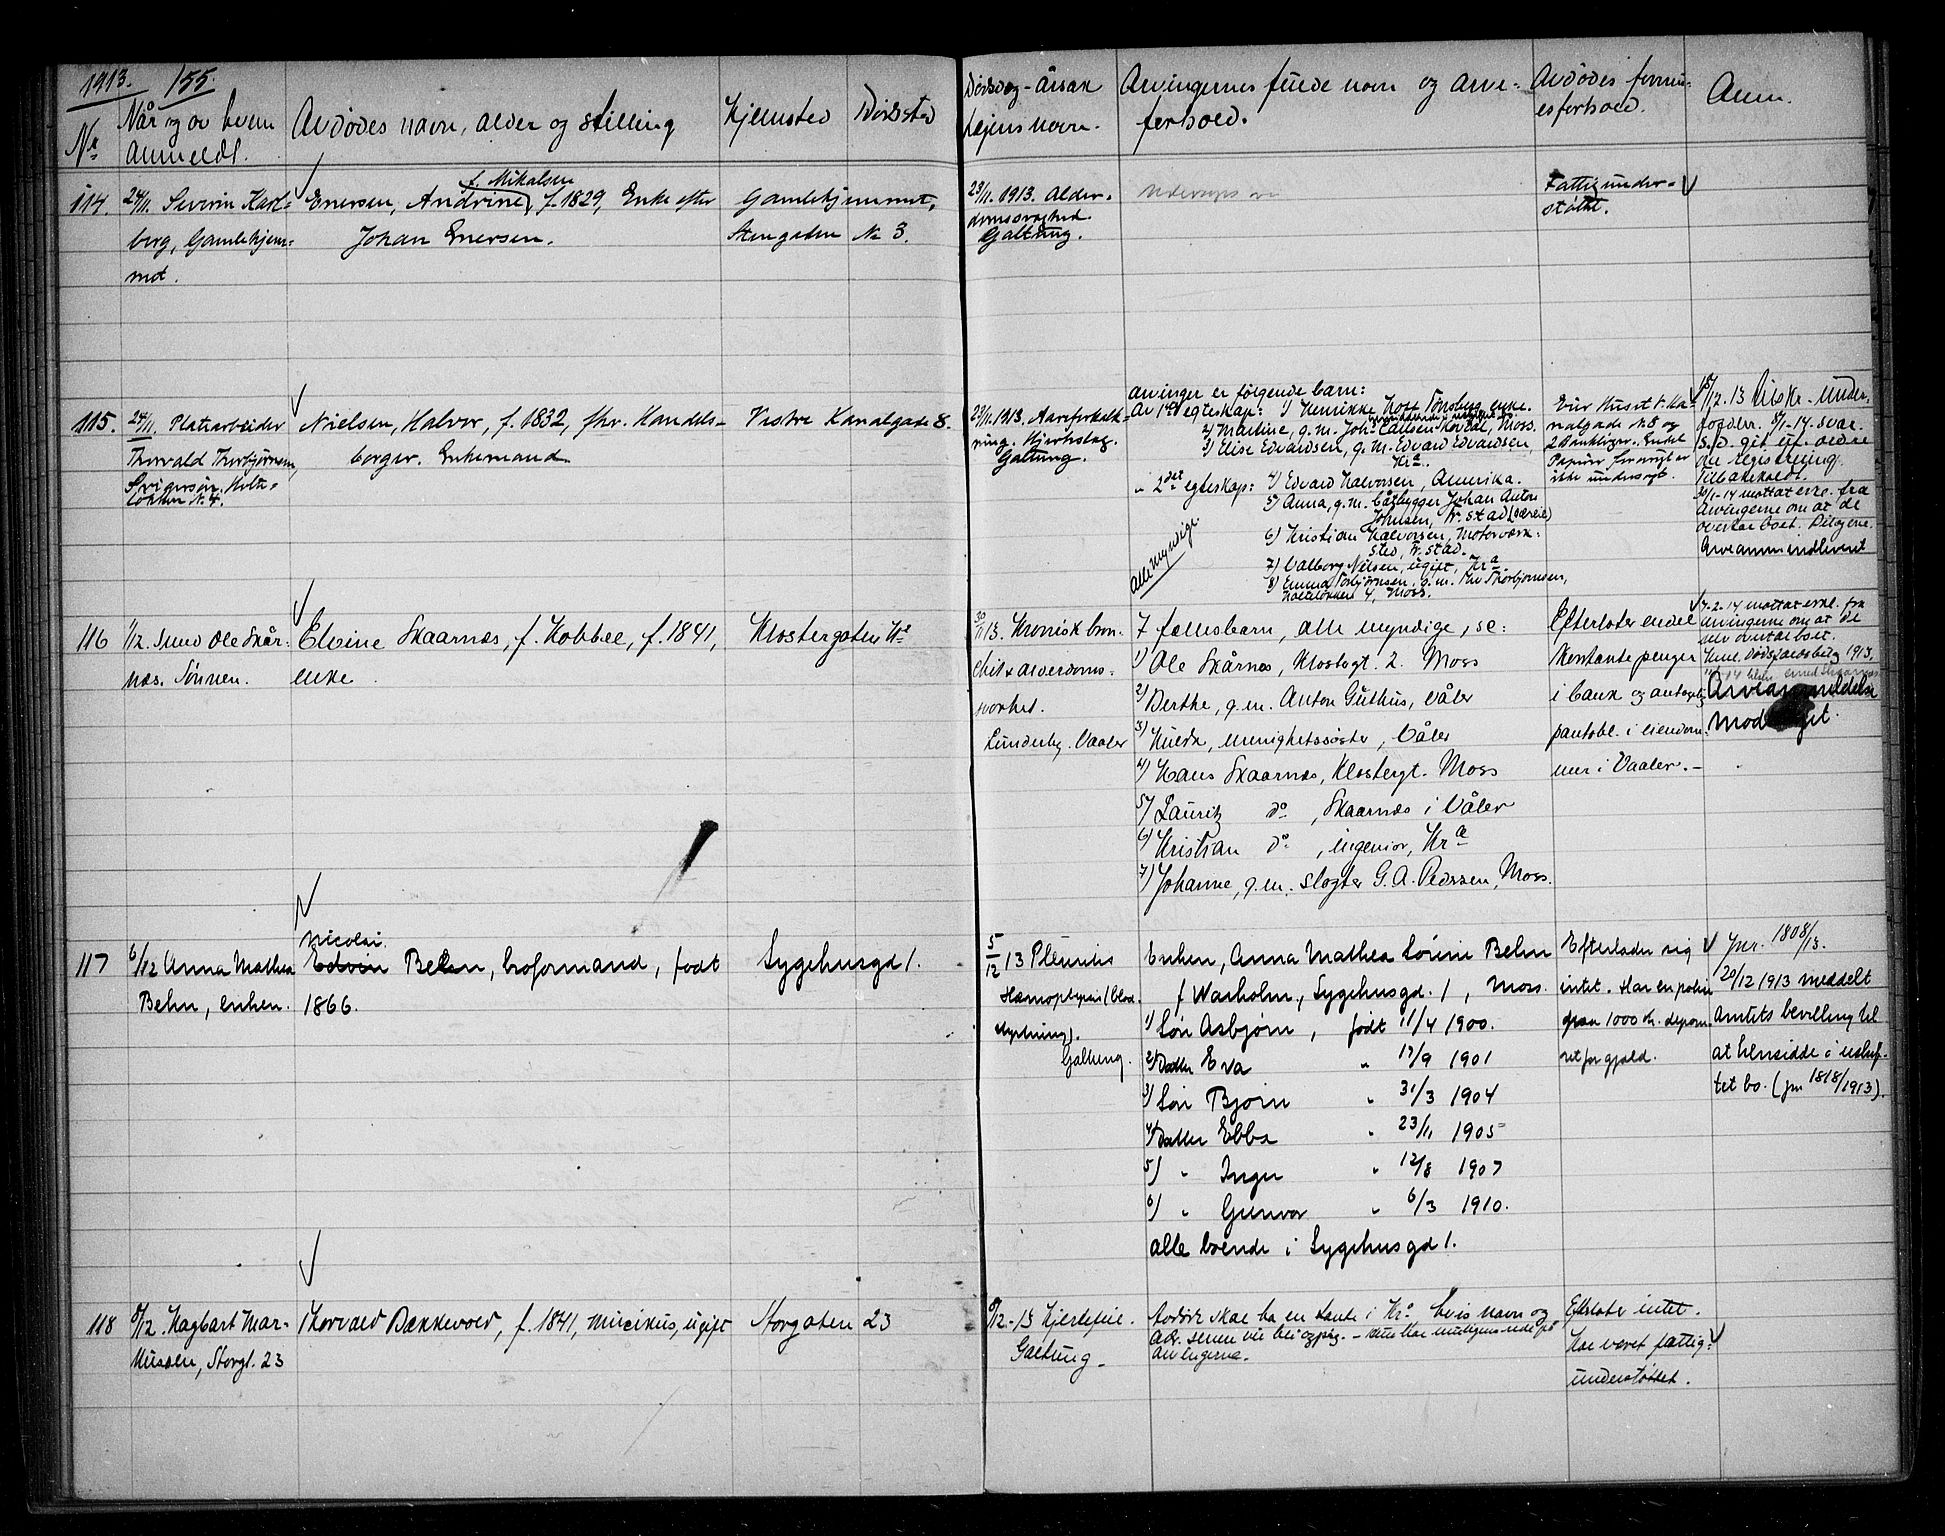 1913. 155.
Nr
Når og av hvem
anmeldt.
Avdødes navn, alder og stilling
Hjemsted
Dødssted
Dødsdag - årsak
Lægens navn.
Arvingernes fulde navn og arve-
forhold.
Avdødes formu-
esforhold.
Anm.
114.
24/11. Severin Karl-
berg, Gamlehjem-
met.
f. Mikalsen
Enersen, Andrine, f. 1829, Enke efter
Johan Enersen.
Gamlehjemmet,
Stengaden No 3.
23/11. 1913. Alder-
domssvaghed.
Galtung.
Fattigunder-
støttet.
115.
24/11. Platearbeider
Thorvald Thorbjørnsen,
Svigersøn. Holte-
løkken No 4.
Nielsen, Halvor, f. 1832, fhv. Handels-
borger. Enkemand.
Vestre Kanalgade 8.
23/11. 1913. Aareforkalk-
ning. Hjerteslag.
Galtung.
arvinger er følgende barn:
Av 1ste egteskap: 1) Henrikke Hoff Tønsberg, enke.
2) Martine, g.m. Johs Carlsen Kovdal, Moss.
3) Elise Edvardsen, g.m. Edvard Edvardsen,
Kra.
" 2det egteskap: 4) Edvard Halvorsen, Amerika.
5) Anna, g.m. båtbygger Johan Anton
Johnsen, Fr.stad (særeie)
6) Kristian Halvorsen, Motorværk-
sted, Fr.stad.
7) Valborg Nilsen, ugift, Kra.
8) Emma Torbjørnsen, g.m. Thv Thorbjørnsen,
Holteløkken 4, Moss.
alle myndige.
Eier Huset V. Ka-
nalgade No 8 og
2 Bankbøger. Enkel
Papirer forøvrigt er
ikke undersøgt.
/12. 13 tilskr. under
fogden. 8/1-14. svar.
S.d. git uf. ordre
om registrering.
Tilbakeholdt.
20/1-14 mottat erkl. fra
arvingerne om at de
overtar boet.
Arveanm indlevert
116
1/12. Smed Ole Skår-
næs. Sønnen.
Elvine Skaarnæs, f. Kobbel, f. 1841,
enke.
Klostergaten No
30/11 13. Kronisk bron-
chit & alderdoms-
svakhet.
Lunderby. Vaaler
7 fællesbarn, alle myndige, se:
1) Ole Skårnæs, Klostgt. 2. Moss
2) Berthe, g.m. Anton Guthus, Våler
3) Hulda, menighetssøster, Våler
4) Hans Skaarnæs, Klostergt. Moss
5) Lauritz do, Skaarnæs i Våler
6) Kristian do, ingeniør, Kra
7) Johanne, g.m. slagter G.A. Pedersen, Moss.
Efterlater endel
kontante penger
i bank og antagelig
pantobl. i eiendom-
mer i Vaaler. -
4-2-14 mottat erkl. fra
arvingerne om at de
selv overtar boet.
1913,
Arveanmeldelse
117
6/12 Anna Mathea
Behn, enken.
Nicolai
Edvin Behn, broformand, født
1866.
Sygehusgd 1.
5/12 13 Pleuritis
Hæmoptysis (blod-
styrtning).
Galtung.
Enken, Anna Mathea Sørine Behn
f Warholm, Sygehusgd. 1, Moss.
1) Søn Asbjørn, født 11/4 1900.
2) Datter Eva " 17/9 1901
3) Søn Bjørn " 31/3 1904
4) Datter Ebba " 23/11 1905
5) " Inger " 12/8 1907
6) " Gunvor " 6/3 1910.
alle boende i Sygehusgd 1.
Efterlader sig
intet. Har en polise
paa 1000 kr. depone-
ret for gjæld.
Jnr. 1808/13.
20/12 1913 meddelt
Amtets bevilling til
at hensidde i uskif-
tet bo. (jnr 1818/1913).
118
8/12. Hagbart Mar-
kussen, Storgt. 23
Thorvald Bækkevold, f. 1841, musikus, ugift
Storgaten 23
6/12-13 Hjertefeil.
Galtung.
Avdøde skal ha en tante i Kra hvis navn og
adr. senere vil bli oppg. - Denne har muligens rede på
arvingerne.
Efterlot intet.
Har været fattig-
understøttet.